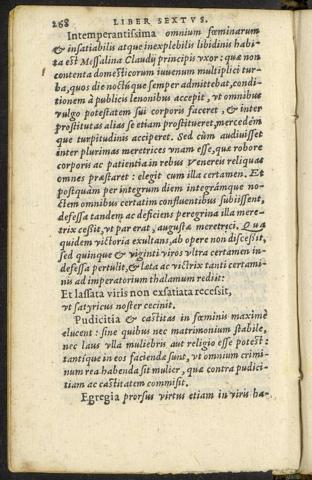 268 LIBER SEXTVS.
Intemperantissima omnium fœminarum
& insatiabilis atque inexplebilis libidinis habi-
ta est Messalina Claudij principis vxor: quæ non
contenta domesticorum iuuenum multiplici tur-
ba, quos die noctúque semper admittebat, condi-
tionem à publicis lenonibus accepit, vt omnibus
vulgo potestatem sui corporis faceret, & inter
prostitutas alias se etiam prostitueret, mercedém
que turpitudinis acciperet. Sed cùm audiuisset
inter plurimas meretrices vnam esse, quæ robore
corporis ac patientia in rebus venereis reliquas
omnes præstaret: elegit cum illa certamen. Et
postquàm per integrum diem integrámque no-
ctem omnibus certatim confluentibus subiissent,
defessa tandem ac deficiens peregrina illa mere-
trix cessit, vt par erat, augustæ meretrici. Quæ
quidem victoria exultans, ab opere non discessit,
sed quinque & viginti viros vltra certamen in-
defessa pertulit, & læta ac victrix tanti certami-
nis ad imperatorium thalamum rediit:
Et lassata viris non exsatiata recessit,
vt satyricus noster cecinit.
Pudicitia & castitas in fœminis maximè
elucent: sine quibus nec matrimonium stabile,
nec laus vlla muliebris aut religio esse potest:
tantíque in eos facienda sunt, vt omnium crimi-
num rea habenda sit mulier, quæ contra pudici-
tiam ac castitatem commisit.
Egregia prorsus virtus etiam in viris ha-